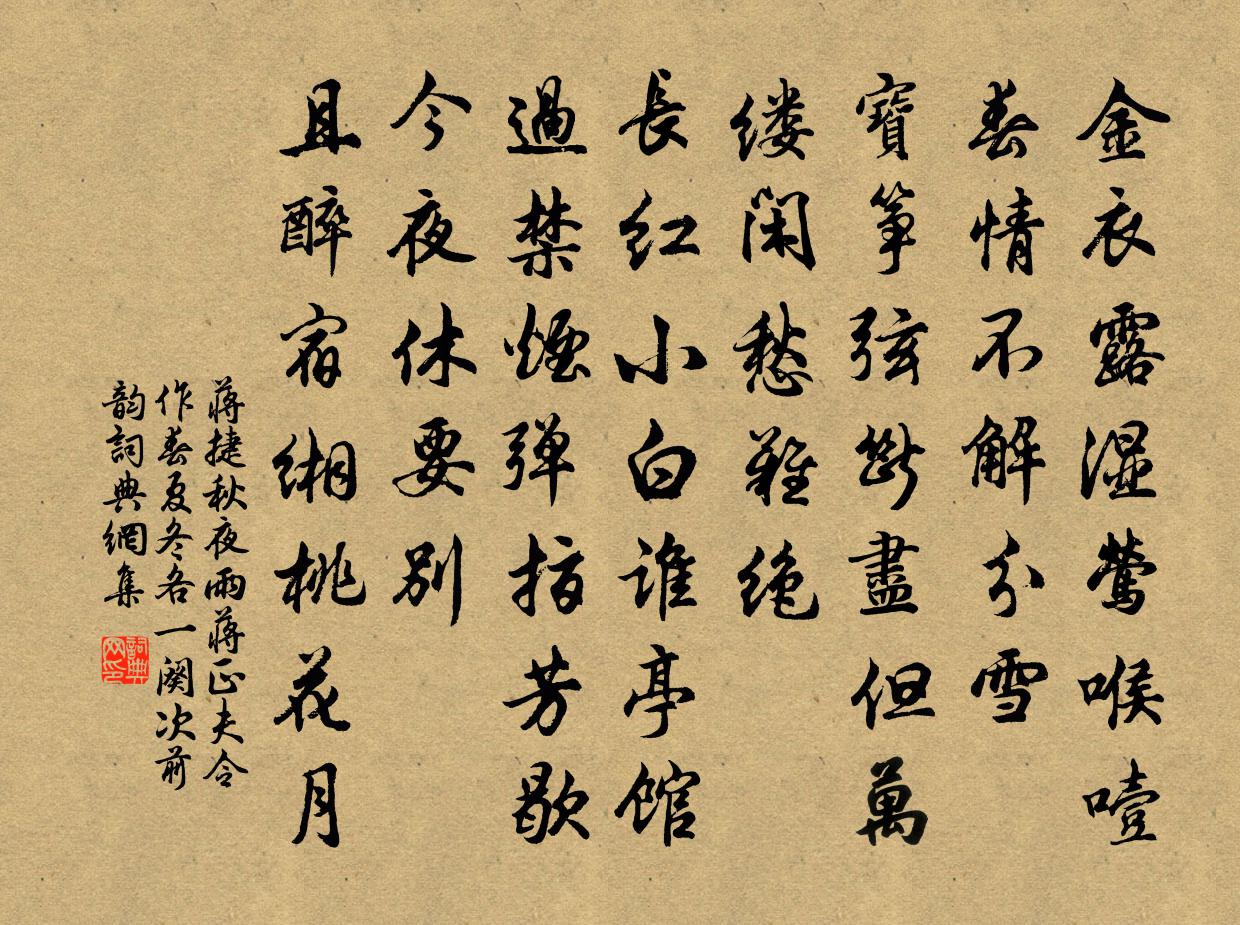 金衣露湿莺喉噎
春情不解分雪
寶筝弦断盡但萬
缕闲愁難绝
長红小白谁亭馆
過禁烟弹指芳歇
今夜休要别
且醉宿缃桃花月
蔣捷秋夜雨蔣正夫令
作春夏冬各一阕次前
韵詞典網集
詞典网印